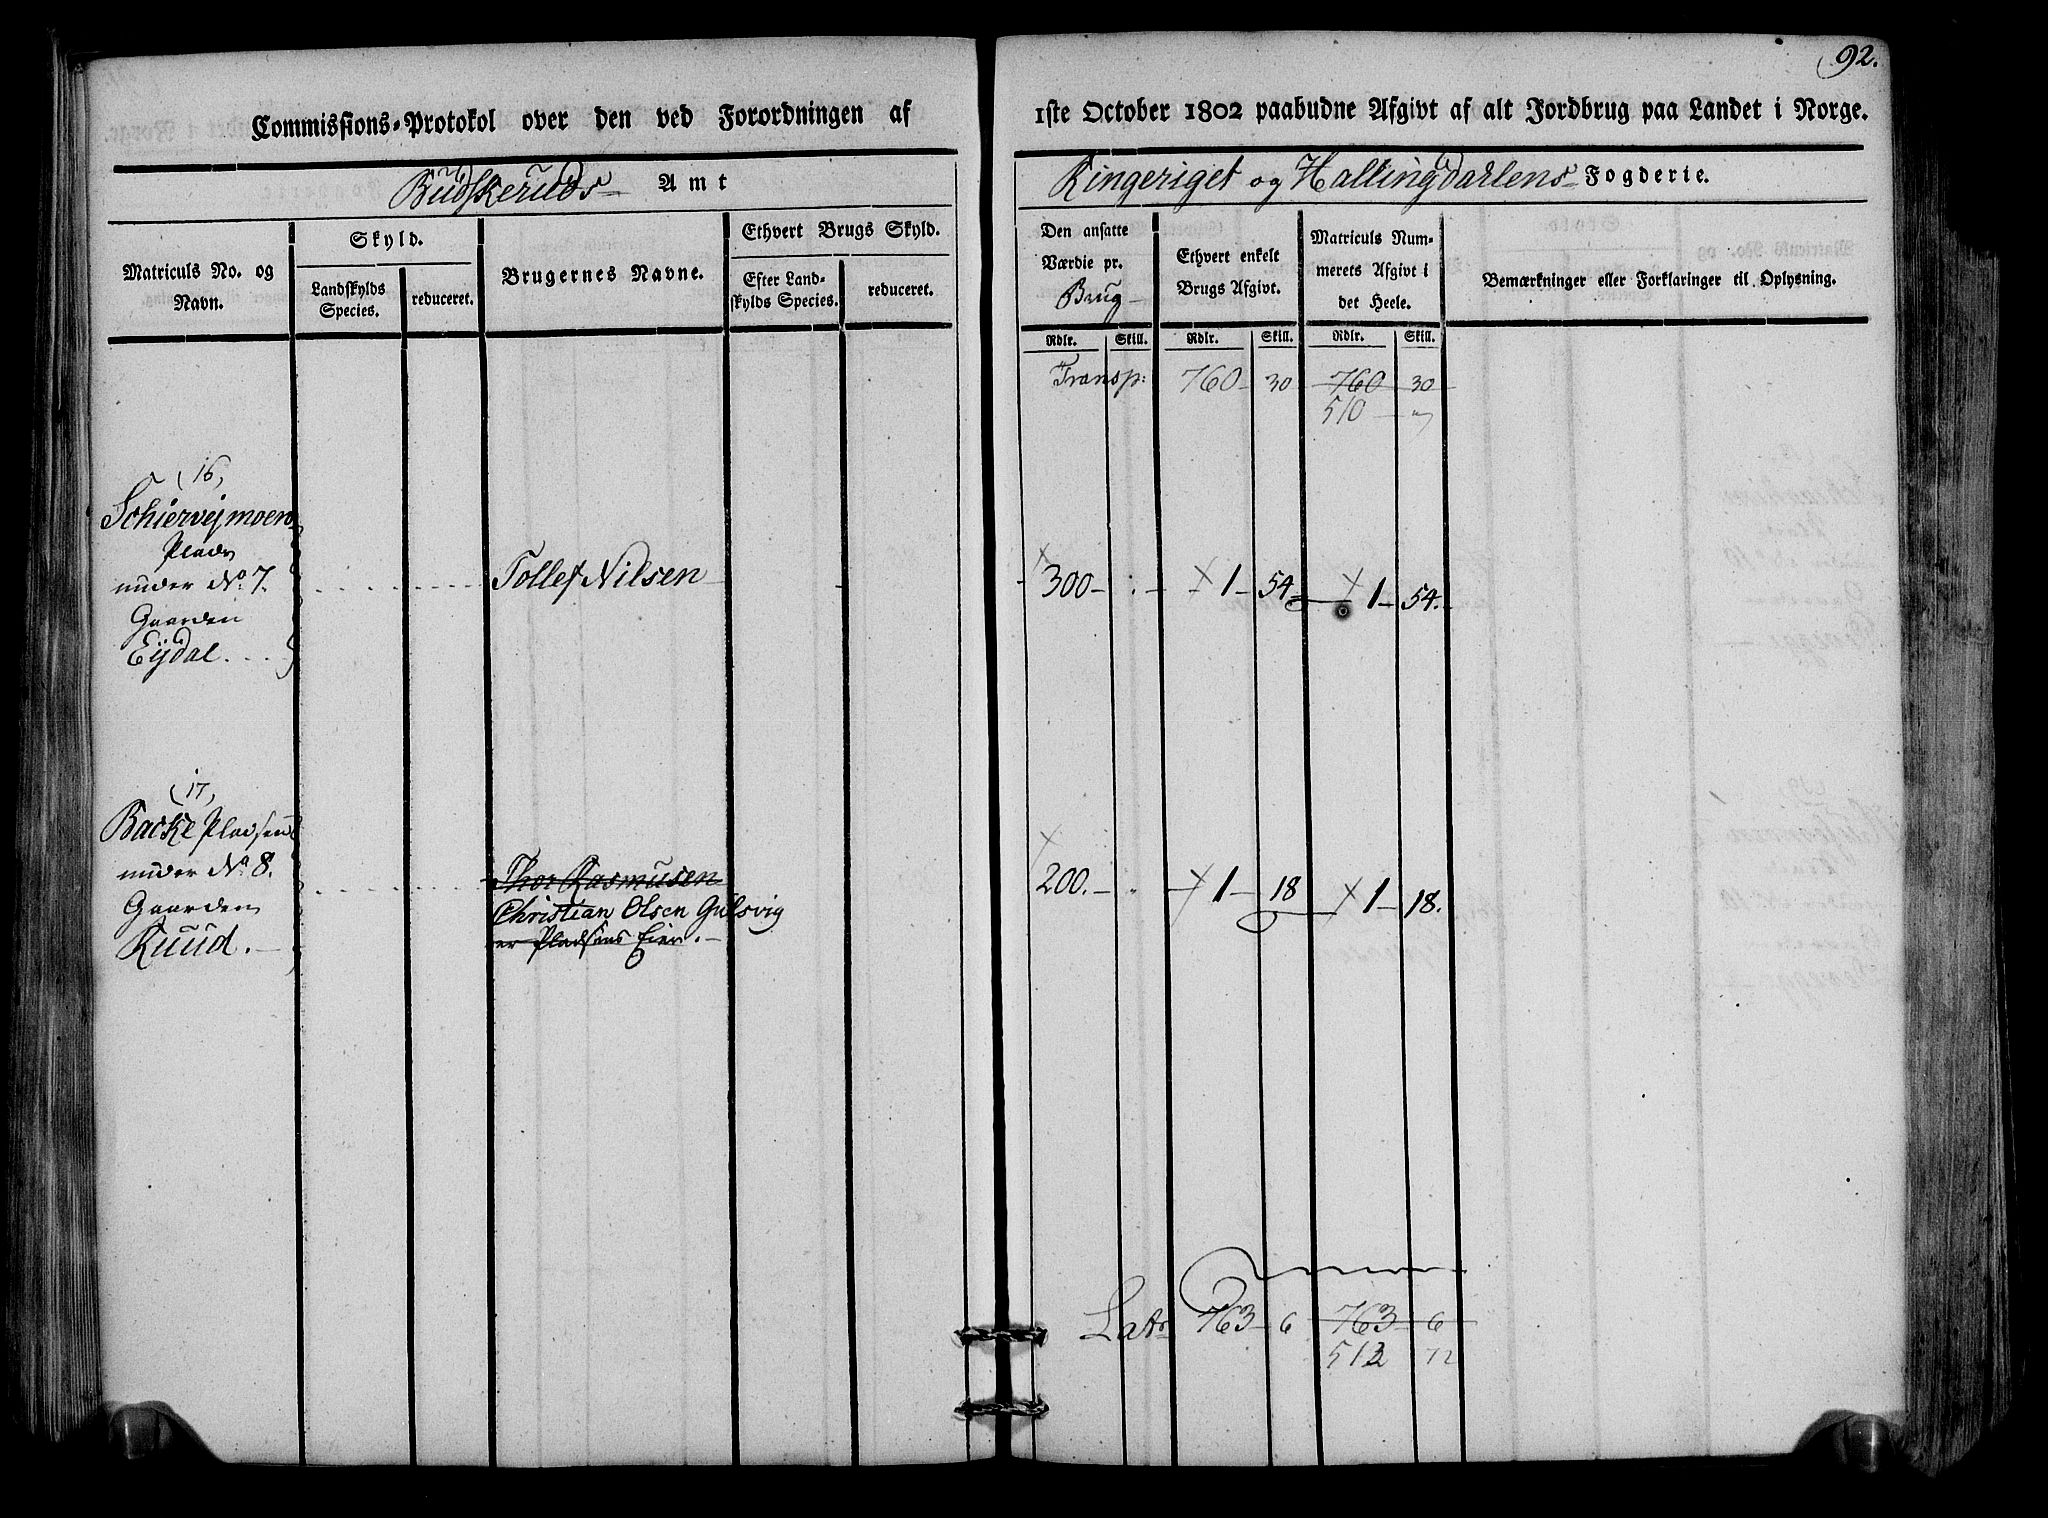 92.
Commissions-Protokol over den ved Forordningen af 1ste October 1802 paabudne Afgivt af alt Jordbrug paa Landet i Norge.
Budskeruds Amt
Ringeriget og Hallingdarlens Fogderie.
Matriculs No. og Navn.
Skyld.
Landskylds Species.
reduceret.
Brugernes Navne.
Ethvert Brugs Skyld.
Efter Landskylds Species.
reduceret.
Den ansatte Værdie pr. Brug
Ethvert enkelt Brugs Afgivt.
Matriculs Nummerets Afgivt i det Heele.
Bemærkninger eller Forklaringer til Oplysning.
Rdlr. Skill. Rdlr. Skill. Rdlr. Skill.
Transp: 760 30 760 30
510 "
(16)
Schiervejmoen
Plads
under No. 7.
Gaarden
Eijdal
Tollef Nilsen
300 : 1 54 1 54.
(17)
Backe Pladsen
under No. 8.
Gaarden
Ruud.
Thor Rasmusen
Christian Olsen Gulsvig
er Pladsens Eier.
200. 1 18 1 18.
Latr 763 6 763 6
512 72